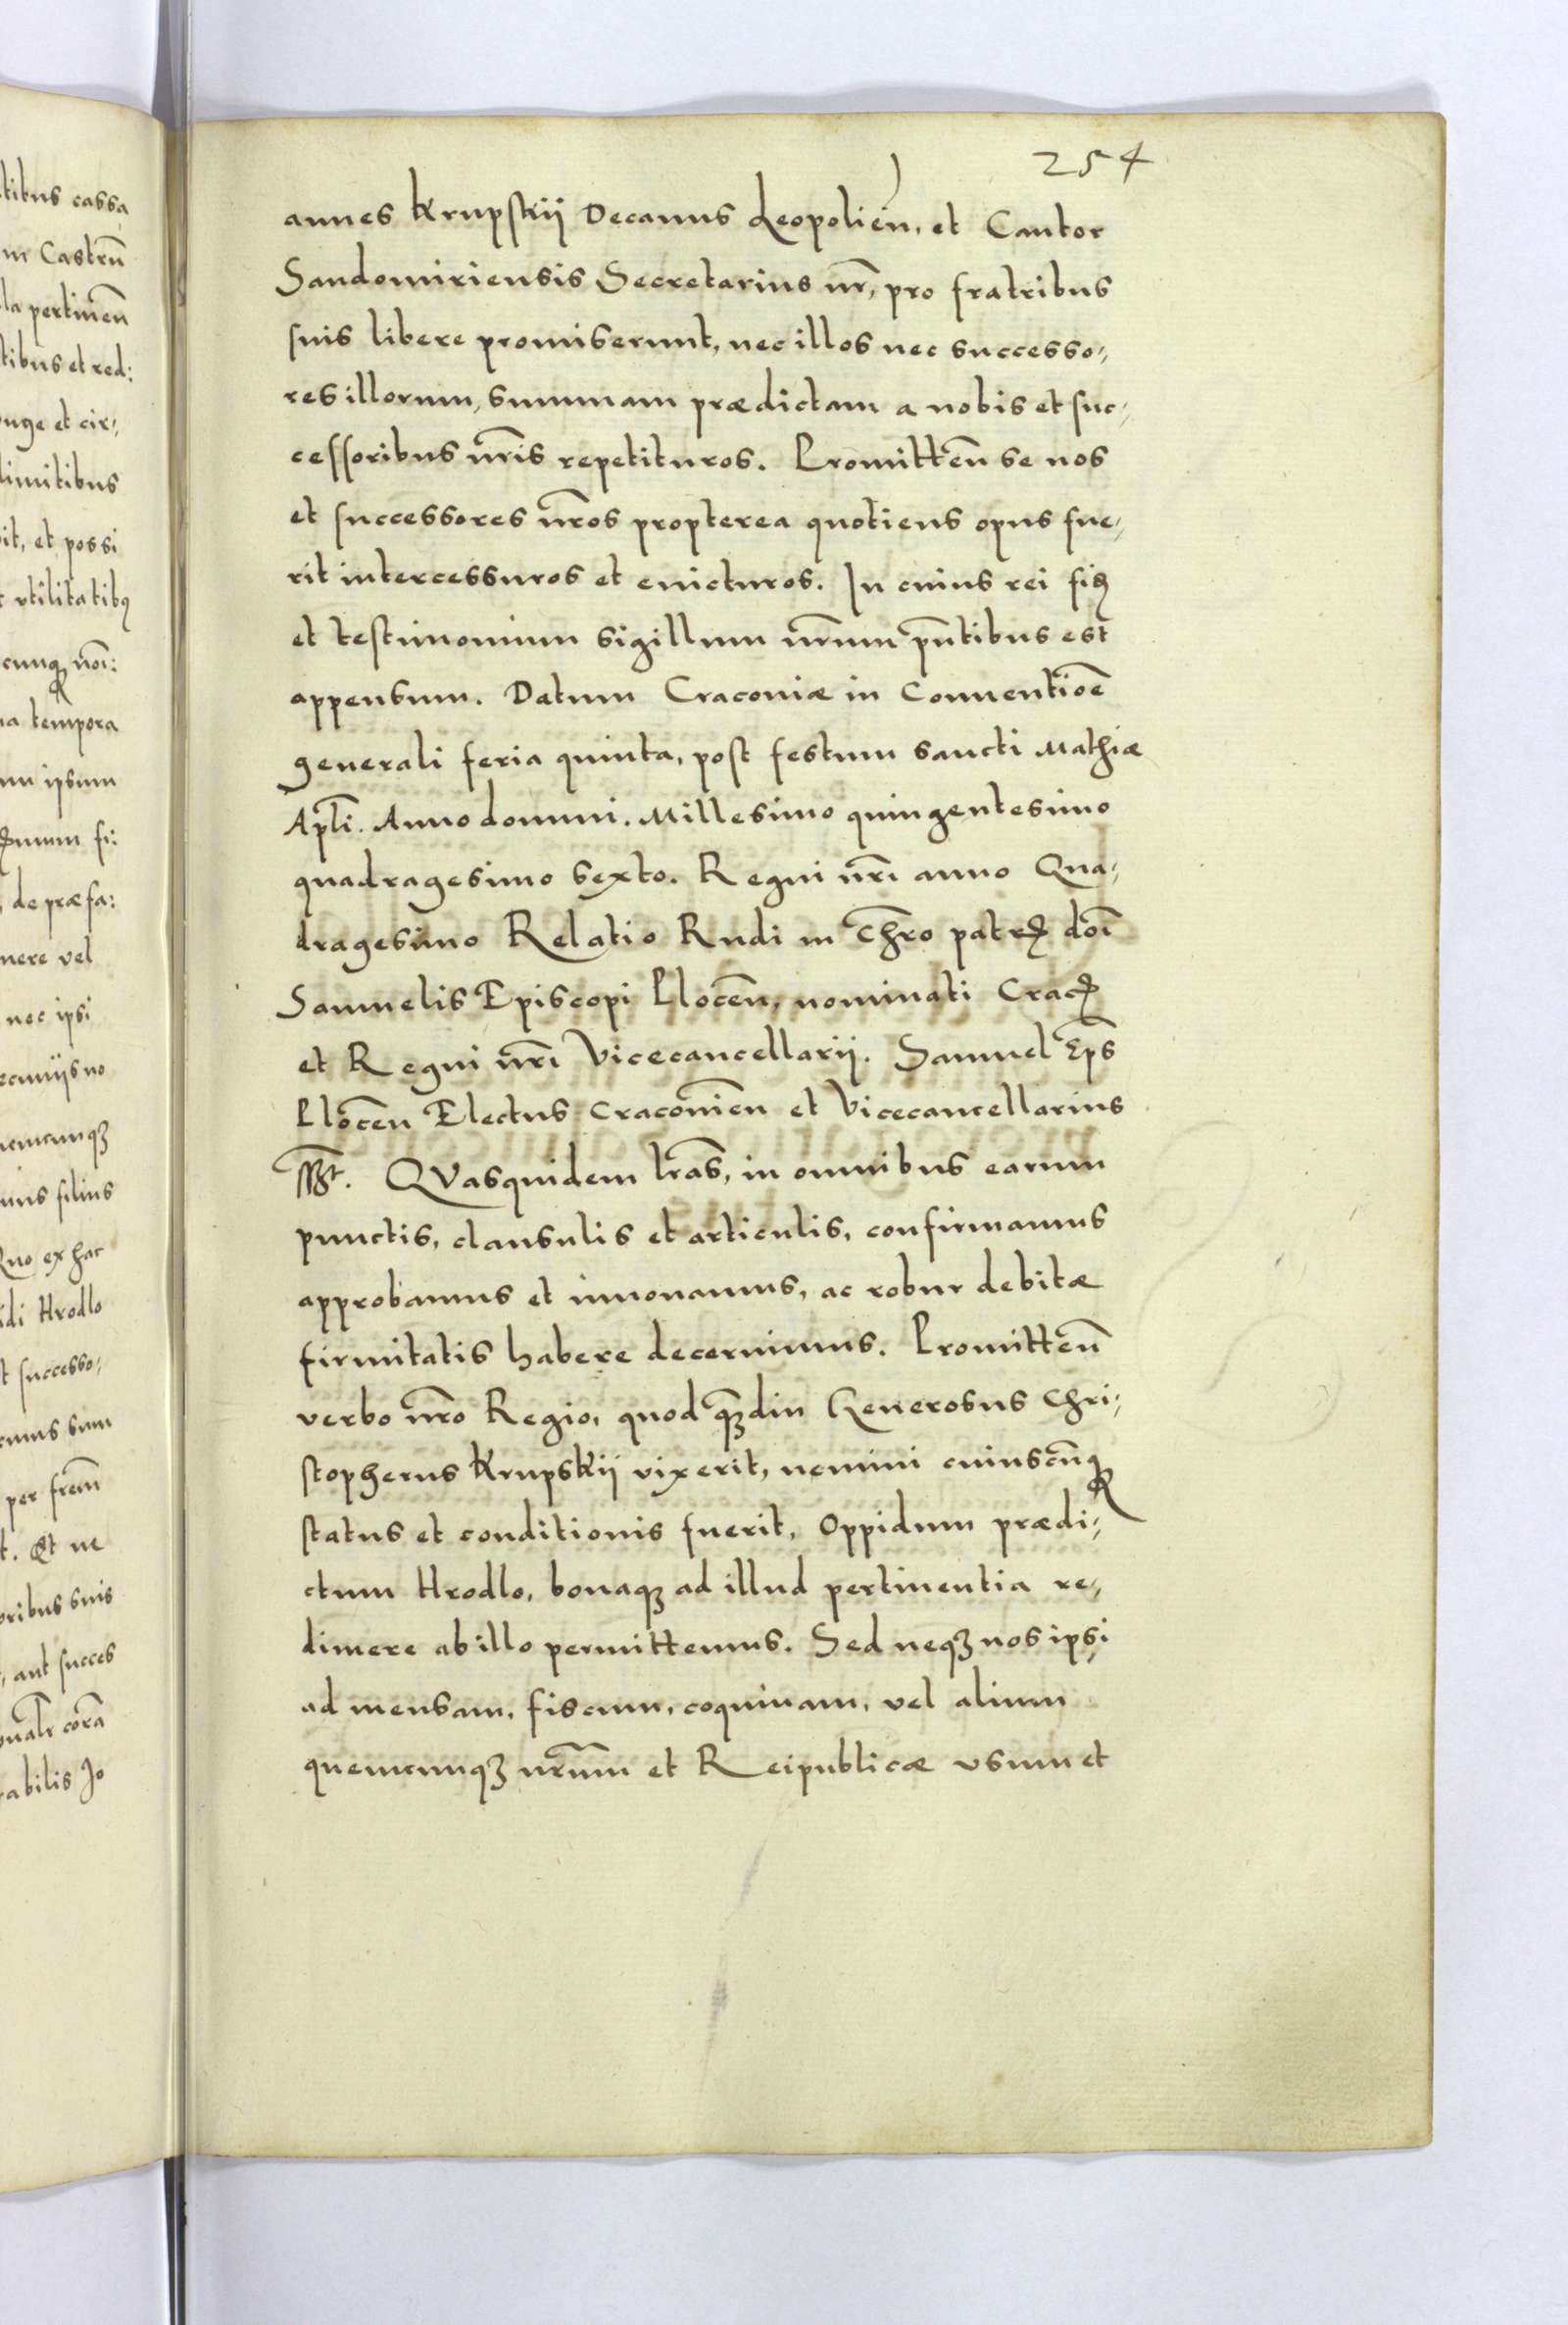 254
annes Krupskii Decanus Leopolień, et Cantor
Sandomiriensis Secretarius nr̃, pro fratribus
suis libere promiserunt, nec illos nec successo-
res illorum, summam prædictam a nobis et suc-
cessoribus nr̃is repetituros. Promitteñ se nos
et successores nr̃os propterea quotiens opus fue-
rit intercessuros et evicturos. In cuius rei fiȝ
et testimonium sigillum nr̃um pñtibus est
appensum. Datum Cracoviæ in Conventioẽ
generali feria quinta, post festum sancti Mathiæ
Apl̃i. Anno domini. Millesimo quingentesimo
quadragesimo sexto. Regni nr̃i anno Qua-
dragesimo Relatio Rndi in Chr̃o patrꝭ doĩ
Samuelis Episcopi Ploceñ, nominati Cracꝭ
et Regni nr̃i Vicecancellarii. Samuel Ep̃s
Ploceñ Electus Cracovień et Vicecancellarius
sszt. QVasquidem lr̃as, in omnibus earum
punctis, clausulis et articulis, confirmamus
approbamus et innovamus, ac robur debitæ
firmitatis habere decernimus. Promitteñ
verbo nr̃o Regio, quod qȝdiu Generosus Chri-
stopherus Krupskii vixerit, nemini cuiuscũqȝ
status et conditionis fuerit, Oppidum prædi-
ctum Hrodlo, bonaqȝ ad illud pertinentia re-
dimere ab illo permittemus. Sed neqȝ nos ipsi
ad mensam, fiscum, coquinam, vel alium
quemcunqȝ nr̃um et Reipublicæ vsum et
tibus cassa
m Castrũ
la pertineñ
tibus et red:
onge et cir-
limitibus
it, et possi
utilitatibꝰ
cunqȝ noĩ:
na tempora
um ipsum
mum fi:
, de præfa:
mere vel
nec ipsi
ecuniis no
emcunqȝ
mus filius
Quo ex hac
idi Hrodlo
t successo-
rimus sum
per frem̃
t. Et ne
oribus suis
, aut succes
onalr̃ corã
rabilis Jo